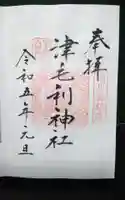 奉拝
津毛利神社
令和五年元旦